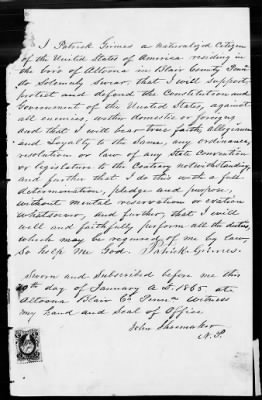 I Patrick Grimes a naturalized Citizen
of the United States of America residing in
the boro' of Altoona in Blair County Penna
do Solemnly Swear, that I will Support
protect and defend the Constitution and
Government of the United States, against
all enemies, wether domestic or foreign
and that I will bear true faith, allegiance
and Loyalty to the Same, any ordinance,
resolution or law of any State Convention
or legislation to the Contrary notwithstanding,
and further that I do this with a full
determination, pledge and purpose,
without mental reservation or evasion
whatsoever, and further, that I will
well and faithfully perform all the duties,
which may be required of me by law,
So help Me God. Patrick Grimes.
Sworn and Subscribed before me this
day of January A.D. 1865 at
Altoona Blair Co Penna Witness
my hand and Seal of Office
John Shoemaker
N.P.